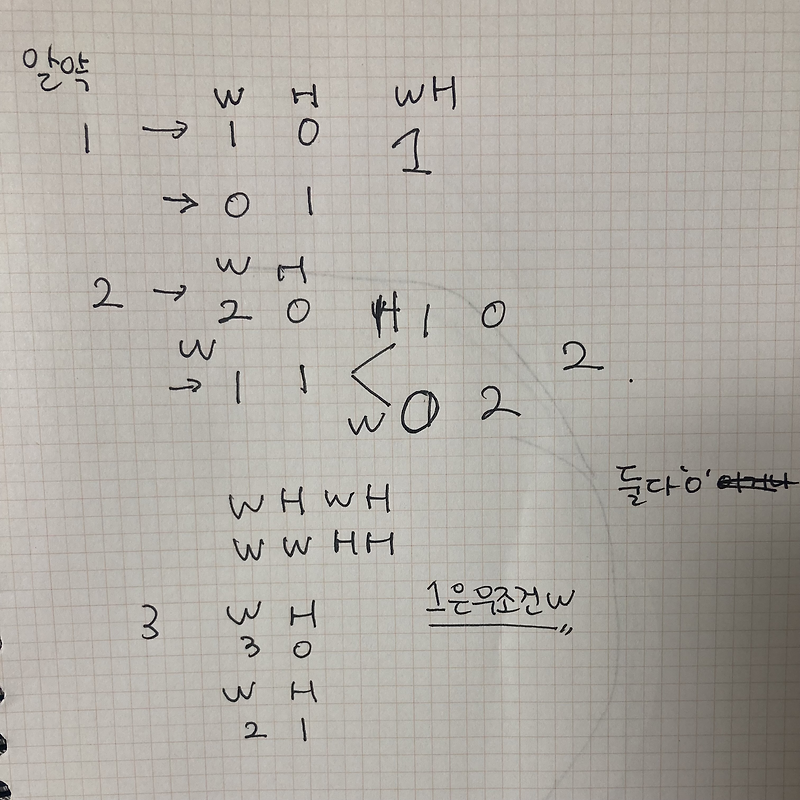 알약
W H WH
1 → 1 0 1
→ 0 1
W H
2 → 2 0 H 1 0
W 2.
→ 1 1 < W 0 2
둘다 'o'
W H W H
W W H H
1은 무조건 W
3 W H
3 0
W H
2 1